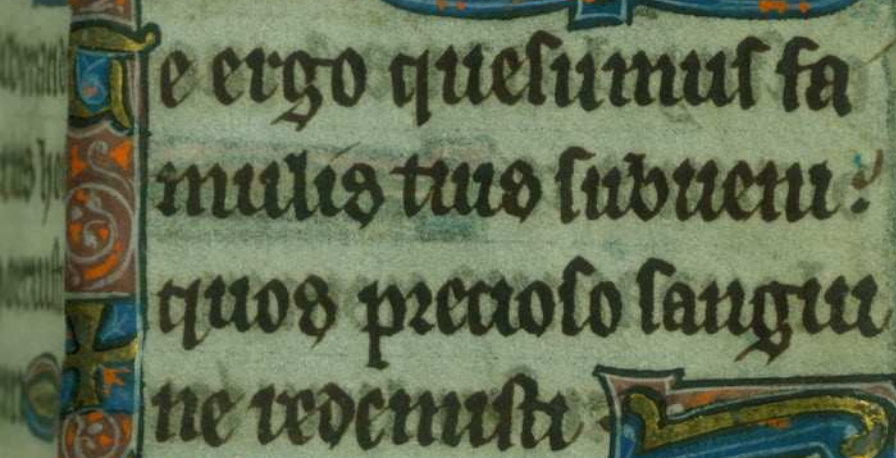 Te ergo quesumus fa
mulis tuis subueni:
quos precioso sangui
ne redemisti